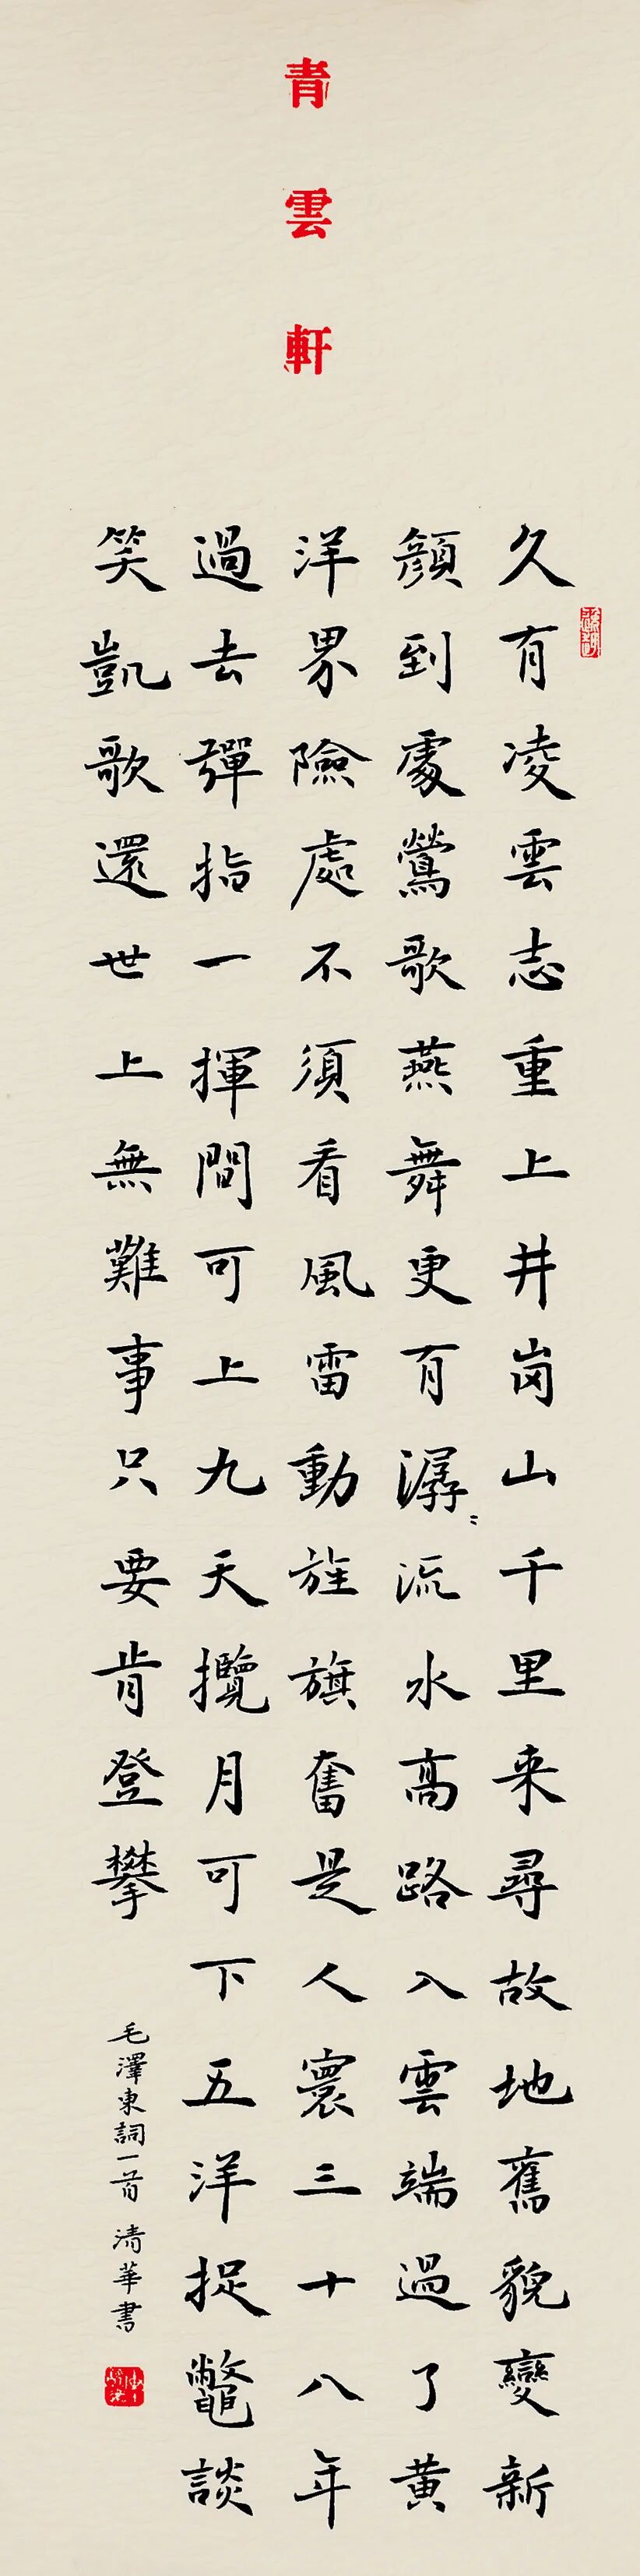 青雲軒
久有凌雲志重上井岗山千里来尋故地舊貌變新
顏到處鶯歌燕舞更有潺〻流水高路入雲端過了黄
洋界險處不須看風雷動旌旗奮是人寰三十八年
過去彈指一揮間可上九天攬月可下五洋捉鼈談
笑凱歌還世上無難事只要肯登攀
毛澤東詞一首 清華書